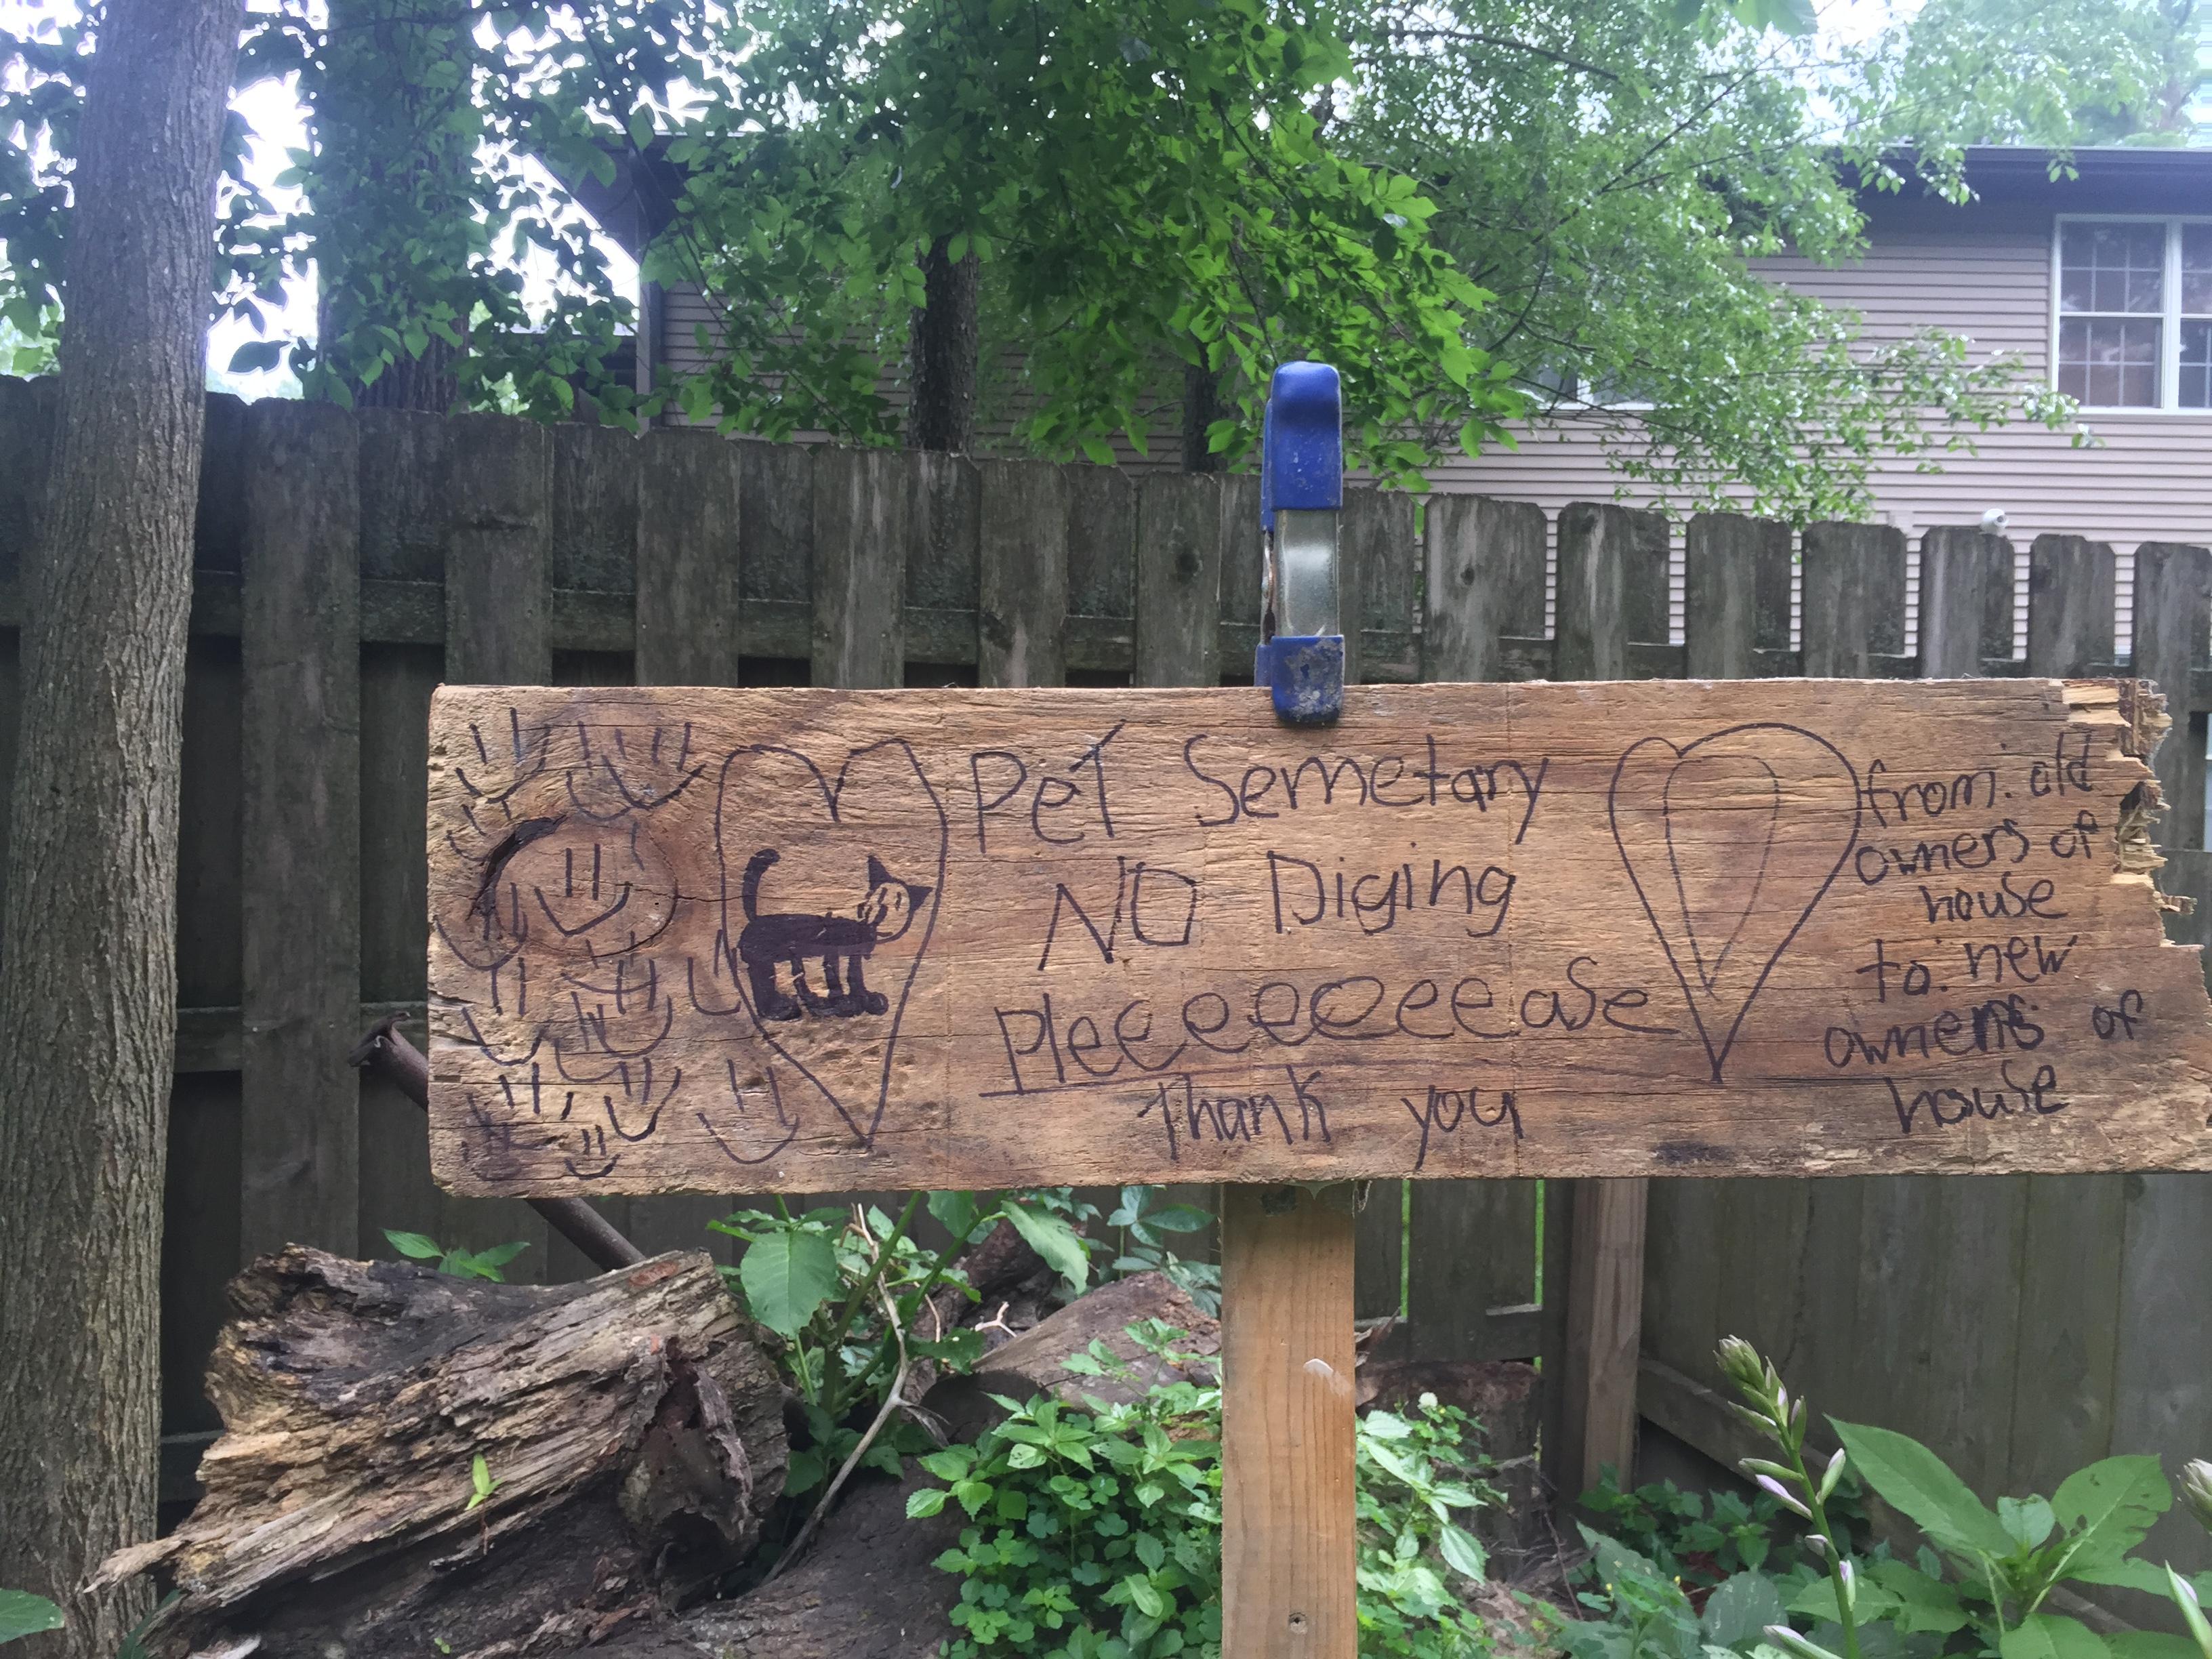 Pet Semetary
NO Diging
Pleeeeeeeease
Thank you
from: old
owners of
house
to: new
owners of
house